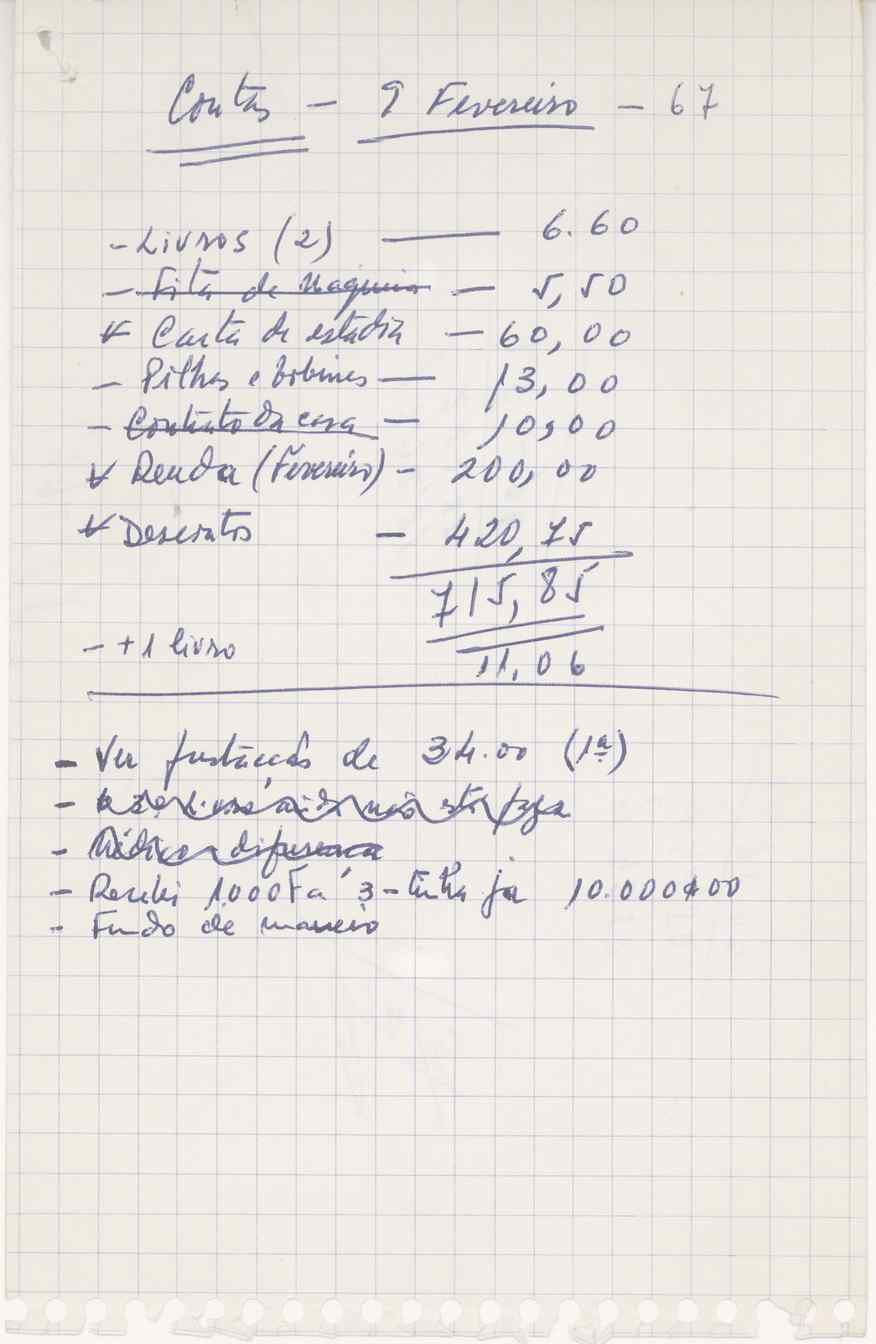 Contas - 9 Fevereiro - 67
- Livros (2) — 6.60
- Fita de maquina — 5,50
Carta de estadia — 60,00
- Pilhas e bobines — 13,00
- Contrato da casa — 10,00
Renda (Fevereiro) - 200,00
Descontos - 420,75
715,85
- + 1 livro 11,06
- Ver de 34.00 (1ª)
- não está
- Médico - diferença
- Recebi 1.000F a 3 - tinha já 10.000$00
- Fundo de maneio